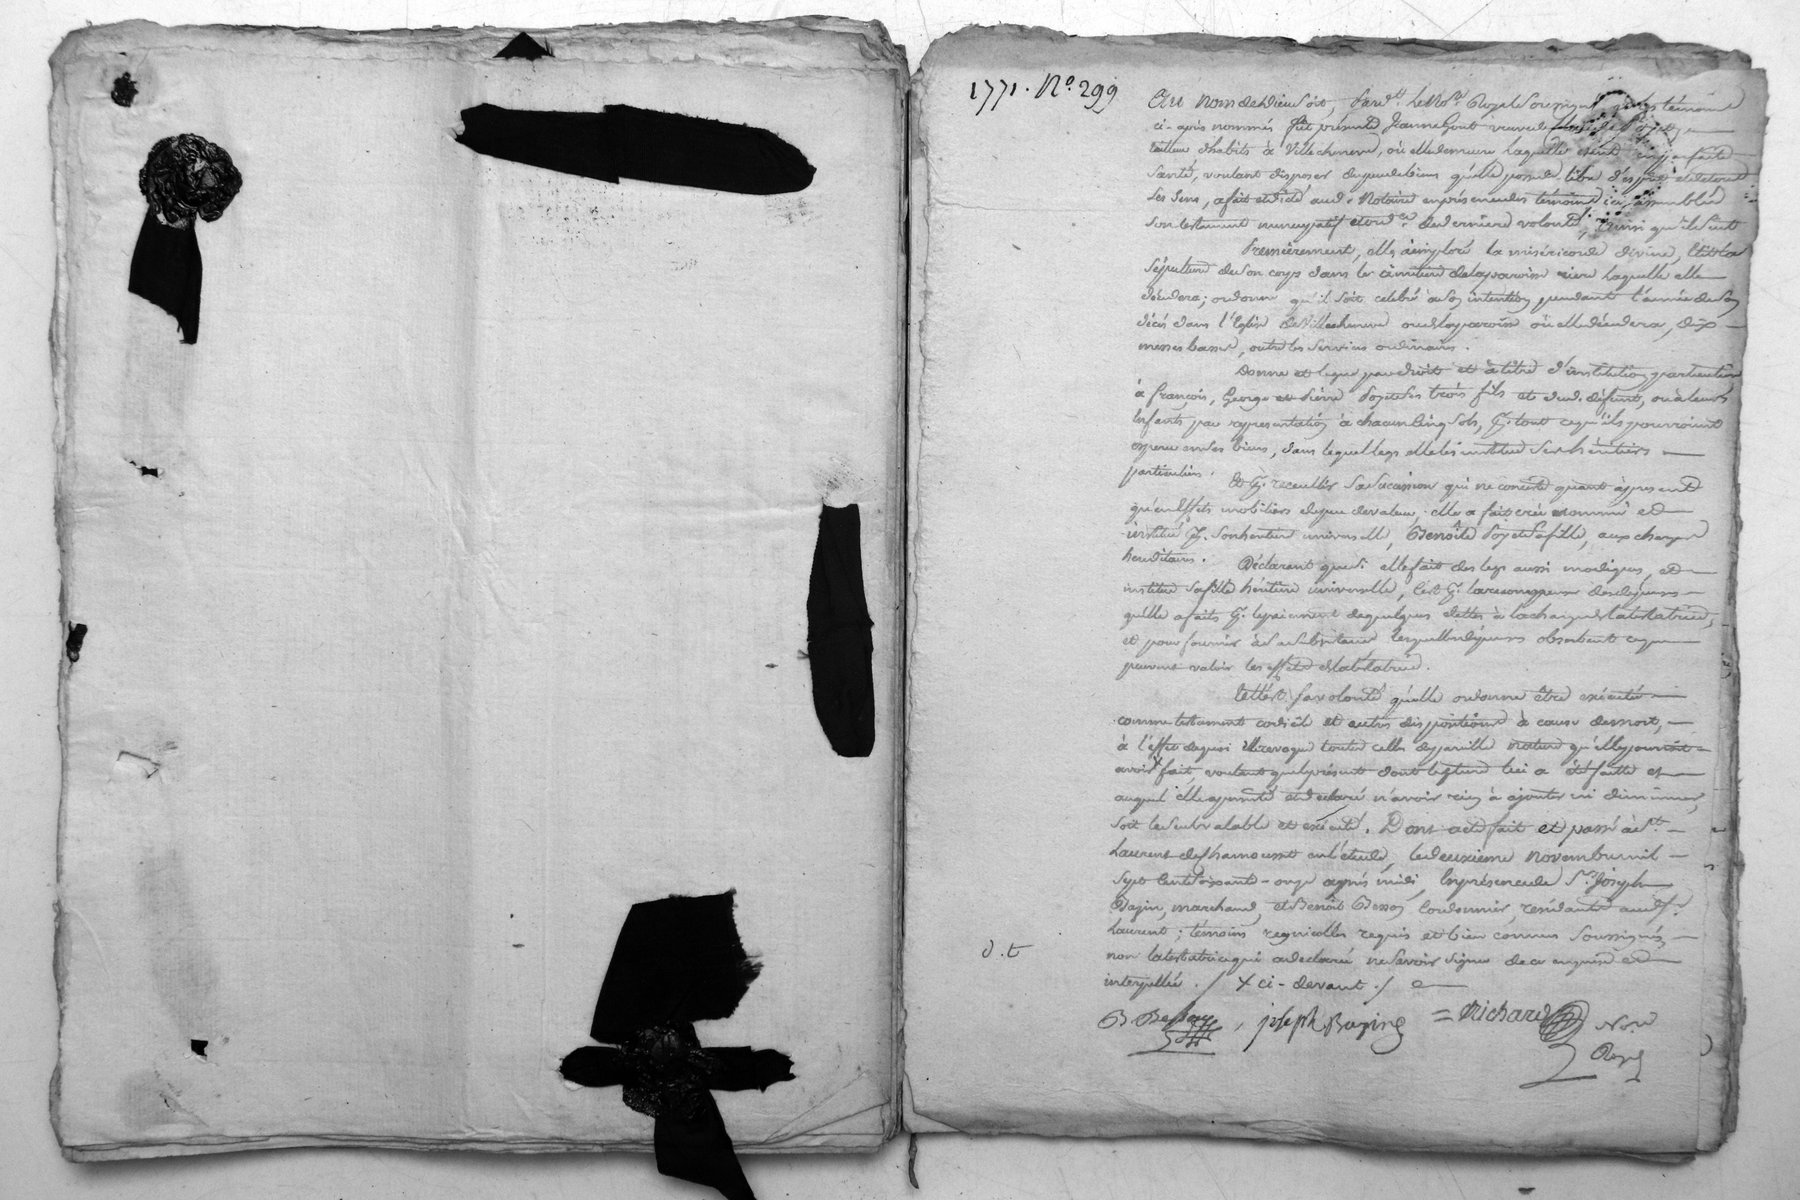 1771. N.º 299
Au Nom de Dieu soit, Pardt. le Nore. Royal soussigné, et les témoins
ci-après nommés fut présente Jeanne Gout veuve de Poyet
tailleur d'habits à Villechenève, où elle demeure laquelle étant en parfaite
santé, voulant disposer du peu de biens qu'elle possede libre d'esprit et de tous
ses sens, a fait et dicté aud. Notaire en présence des témoins ici assemblés
son testament nuncupatif et ordre. de derniere volonté, ainsi qu'il s'ent
Premièrement, elle a imploré la miséricorde divine, Elit la
sépulture de son corps dans le cimetiere de la paroisse riere laquelle elle
décédera; ordonne qu'il soit celebré à son intention pendant l'année de son
décès dans l'Eglise de Villechenève ou de la paroisse où elle décédera, dix
messes basses, outre les services ordinaires.
Donne et legue par droit et à titre d'institution particuliere
à françois, George et Pierre Poyet ses trois fils et dud. défunt, ou à leurs
Enfants par représentation à chacun Cinq sols, Pr. tout ce qu'ils pourroient
esperer en ses biens, dans lequel legs elle les institue ses héritiers
particuliers. Et Pr. recueillir sa sucession qui ne consiste quant à présent
qu'en Effets mobiliers de peu de valeur, elle a fait créé nommé et
institué Pr. son heritiere universelle, Benoîte Poyet sa fille, aux charges
hereditaires. Déclarant que si elle fait des legs aussi modiques, et
institue sa fille héritiere universelle, C'est Pr. la récompenser des dépenses
qu'elle a faits Pr. le paiement de quelques dettes à la charge de la testatrice,
et pour fournir à sa subsistance lesquelles dépenses absorbent ce que
peuvent valoir les effets de la testatrice.
Telle est sa volonté qu'elle ordonne être exécutée
comme testament codicile et autres dispositions à cause de mort,
à l'effet de quoi Elle revoque toutes celles de pareille nature qu'elle pourroit
avoir x fait, voulant que le présent dont lecture lui a été faitte et
auquel elle a persisté et déclaré n'avoir rien à ajouter ni diminuer,
soit le seul valable et exécuté. Dont acte fait et passé à St.
Laurent de Chamousset en l'étude, le deuxieme novembre mil
sept Cent soixante-onze après midi, En présence de Sr. Joseph
Bazin, marchand, et Benoît Besson Cordonnier, résidants aud. St.
Laurent; témoins regnicolles requis et bien connus soussignés,
non la testatrice qui a declaré ne savoir signer de ce enquise et
interpellée. / x ci-devant. /
d.t
B Besson , joseph Bazin = Richard Nore
Royal